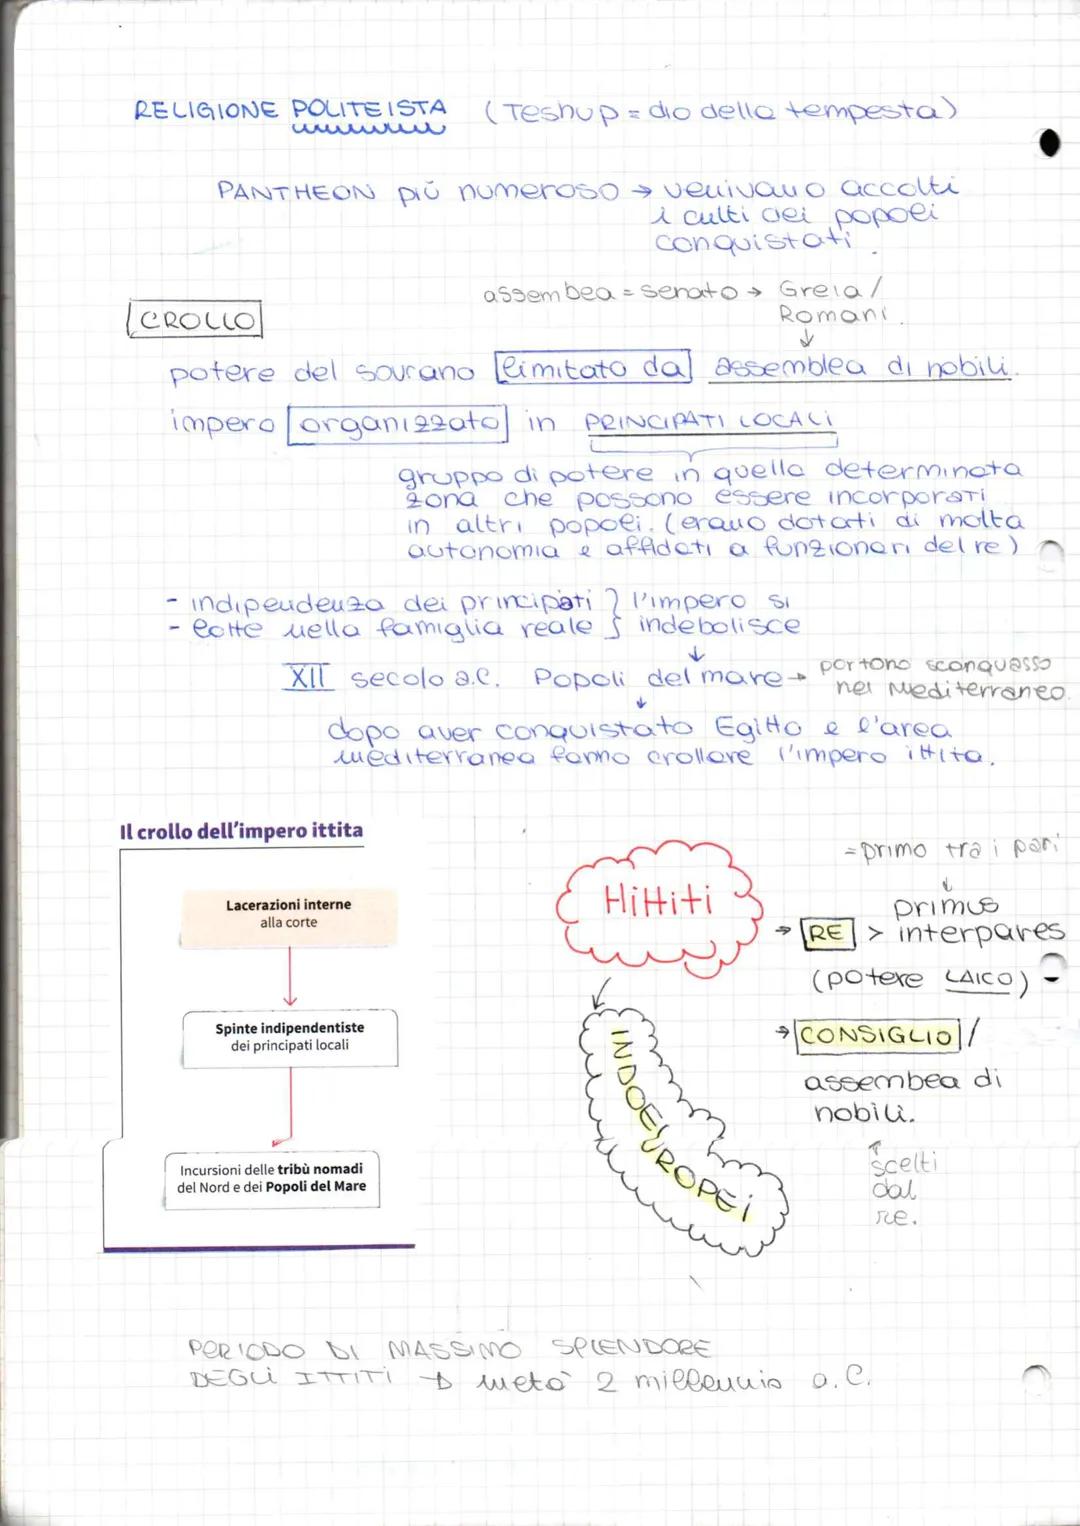 RELIGIONE POLITEISTA (Teshup = dio della tempesta)
PANTHEON più numeroso → venivano accolti
i culti dei popoli
conquistati.
assembea = senato → Greia /
Romani.
CROLLO
potere del sovrano limitato da assemblea di nobili.
impero organizzato in PRINCIPATI LOCALI
gruppo di potere in quella determinata
zona che possono essere incorporati
in altri popoli. (erano dotati di molta
autonomia e affidati a funzionari del re)
- indipendenza dei principati } l'impero si
- lotte nella famiglia reale } indebolisce
XII secolo a.C. Popoli del mare → portano sconquasso
nel Mediterraneo.
dopo aver conquistato Egitto e l'area
mediterranea fanno crollare l'impero ittita.
Il crollo dell'impero ittita
Lacerazioni interne
alla corte
Spinte indipendentiste
dei principati locali
Incursioni delle tribù nomadi
del Nord e dei Popoli del Mare
Hittiti
INDOEUROPEi
= primo tra i pari
primus
→ RE > interpares
(potere LAICO)
→ CONSIGLIO /
assembea di
nobili.
scelti
dal
re.
PERIODO DI MASSIMO SPLENDORE
DEGLI ITTITI → metà 2 millennio a.C.